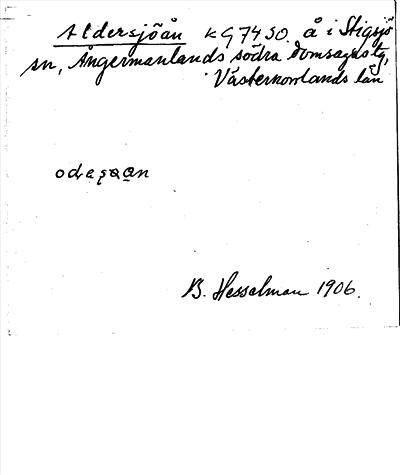 Aldersjöån KG 7450. å i Stigsjö
sn, Ångermanlands södra domsagas tg,
Västernorrlands län
B. Hesselman 1906.